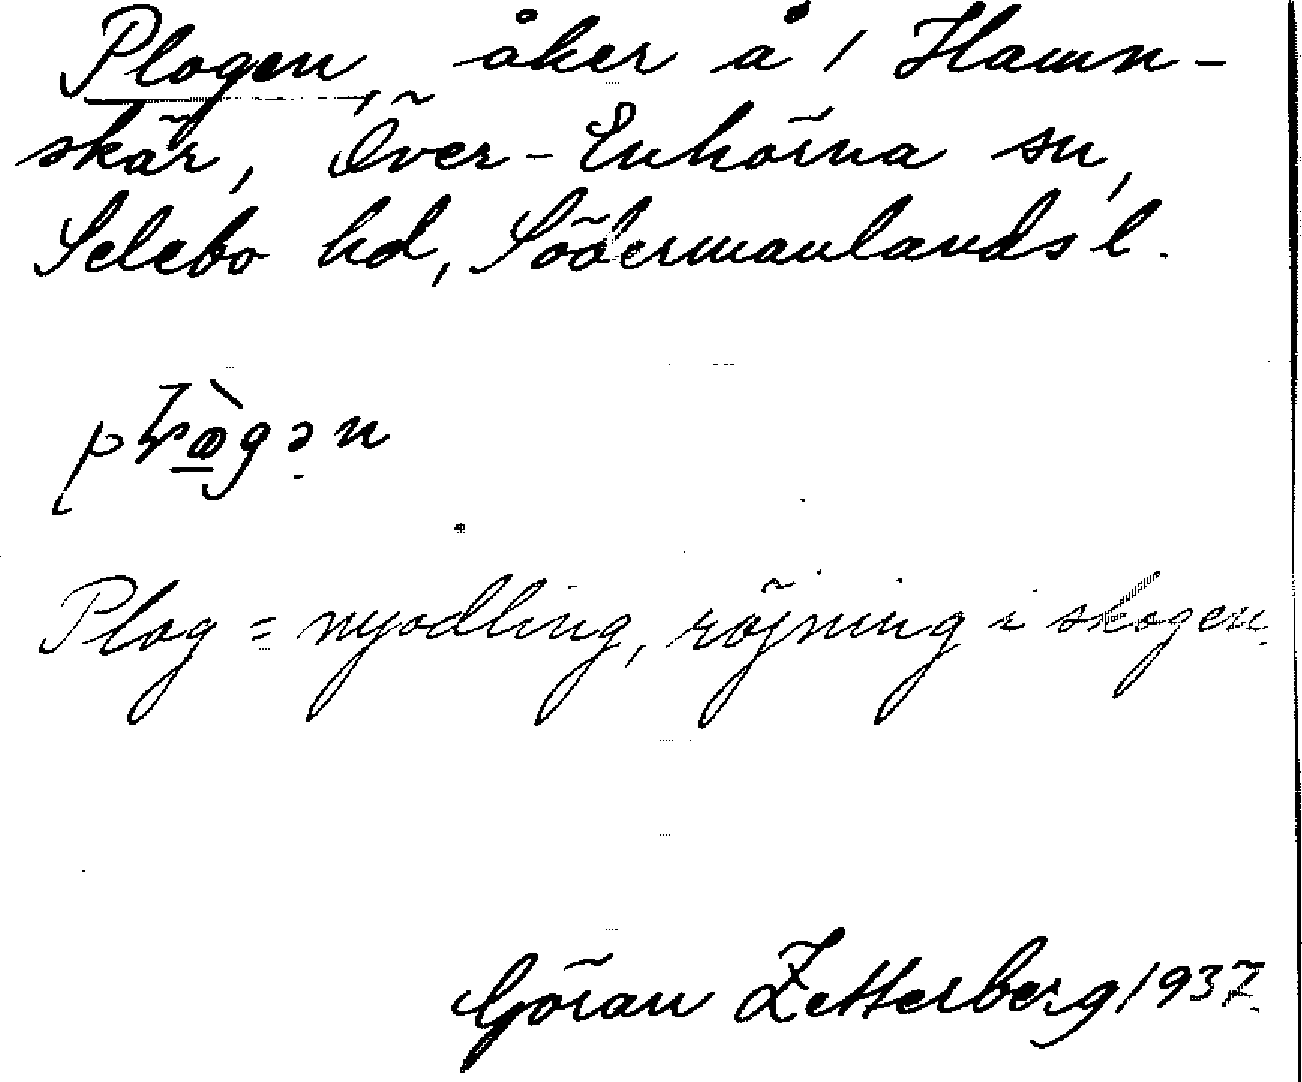 Plogen, åker å 1 Hamn-
skär, Över-Enhörna sn,
Selebo hd, Södermanlands l.
Plog = nyodling, röjning i skogen.
Göran Zetterberg 1937.